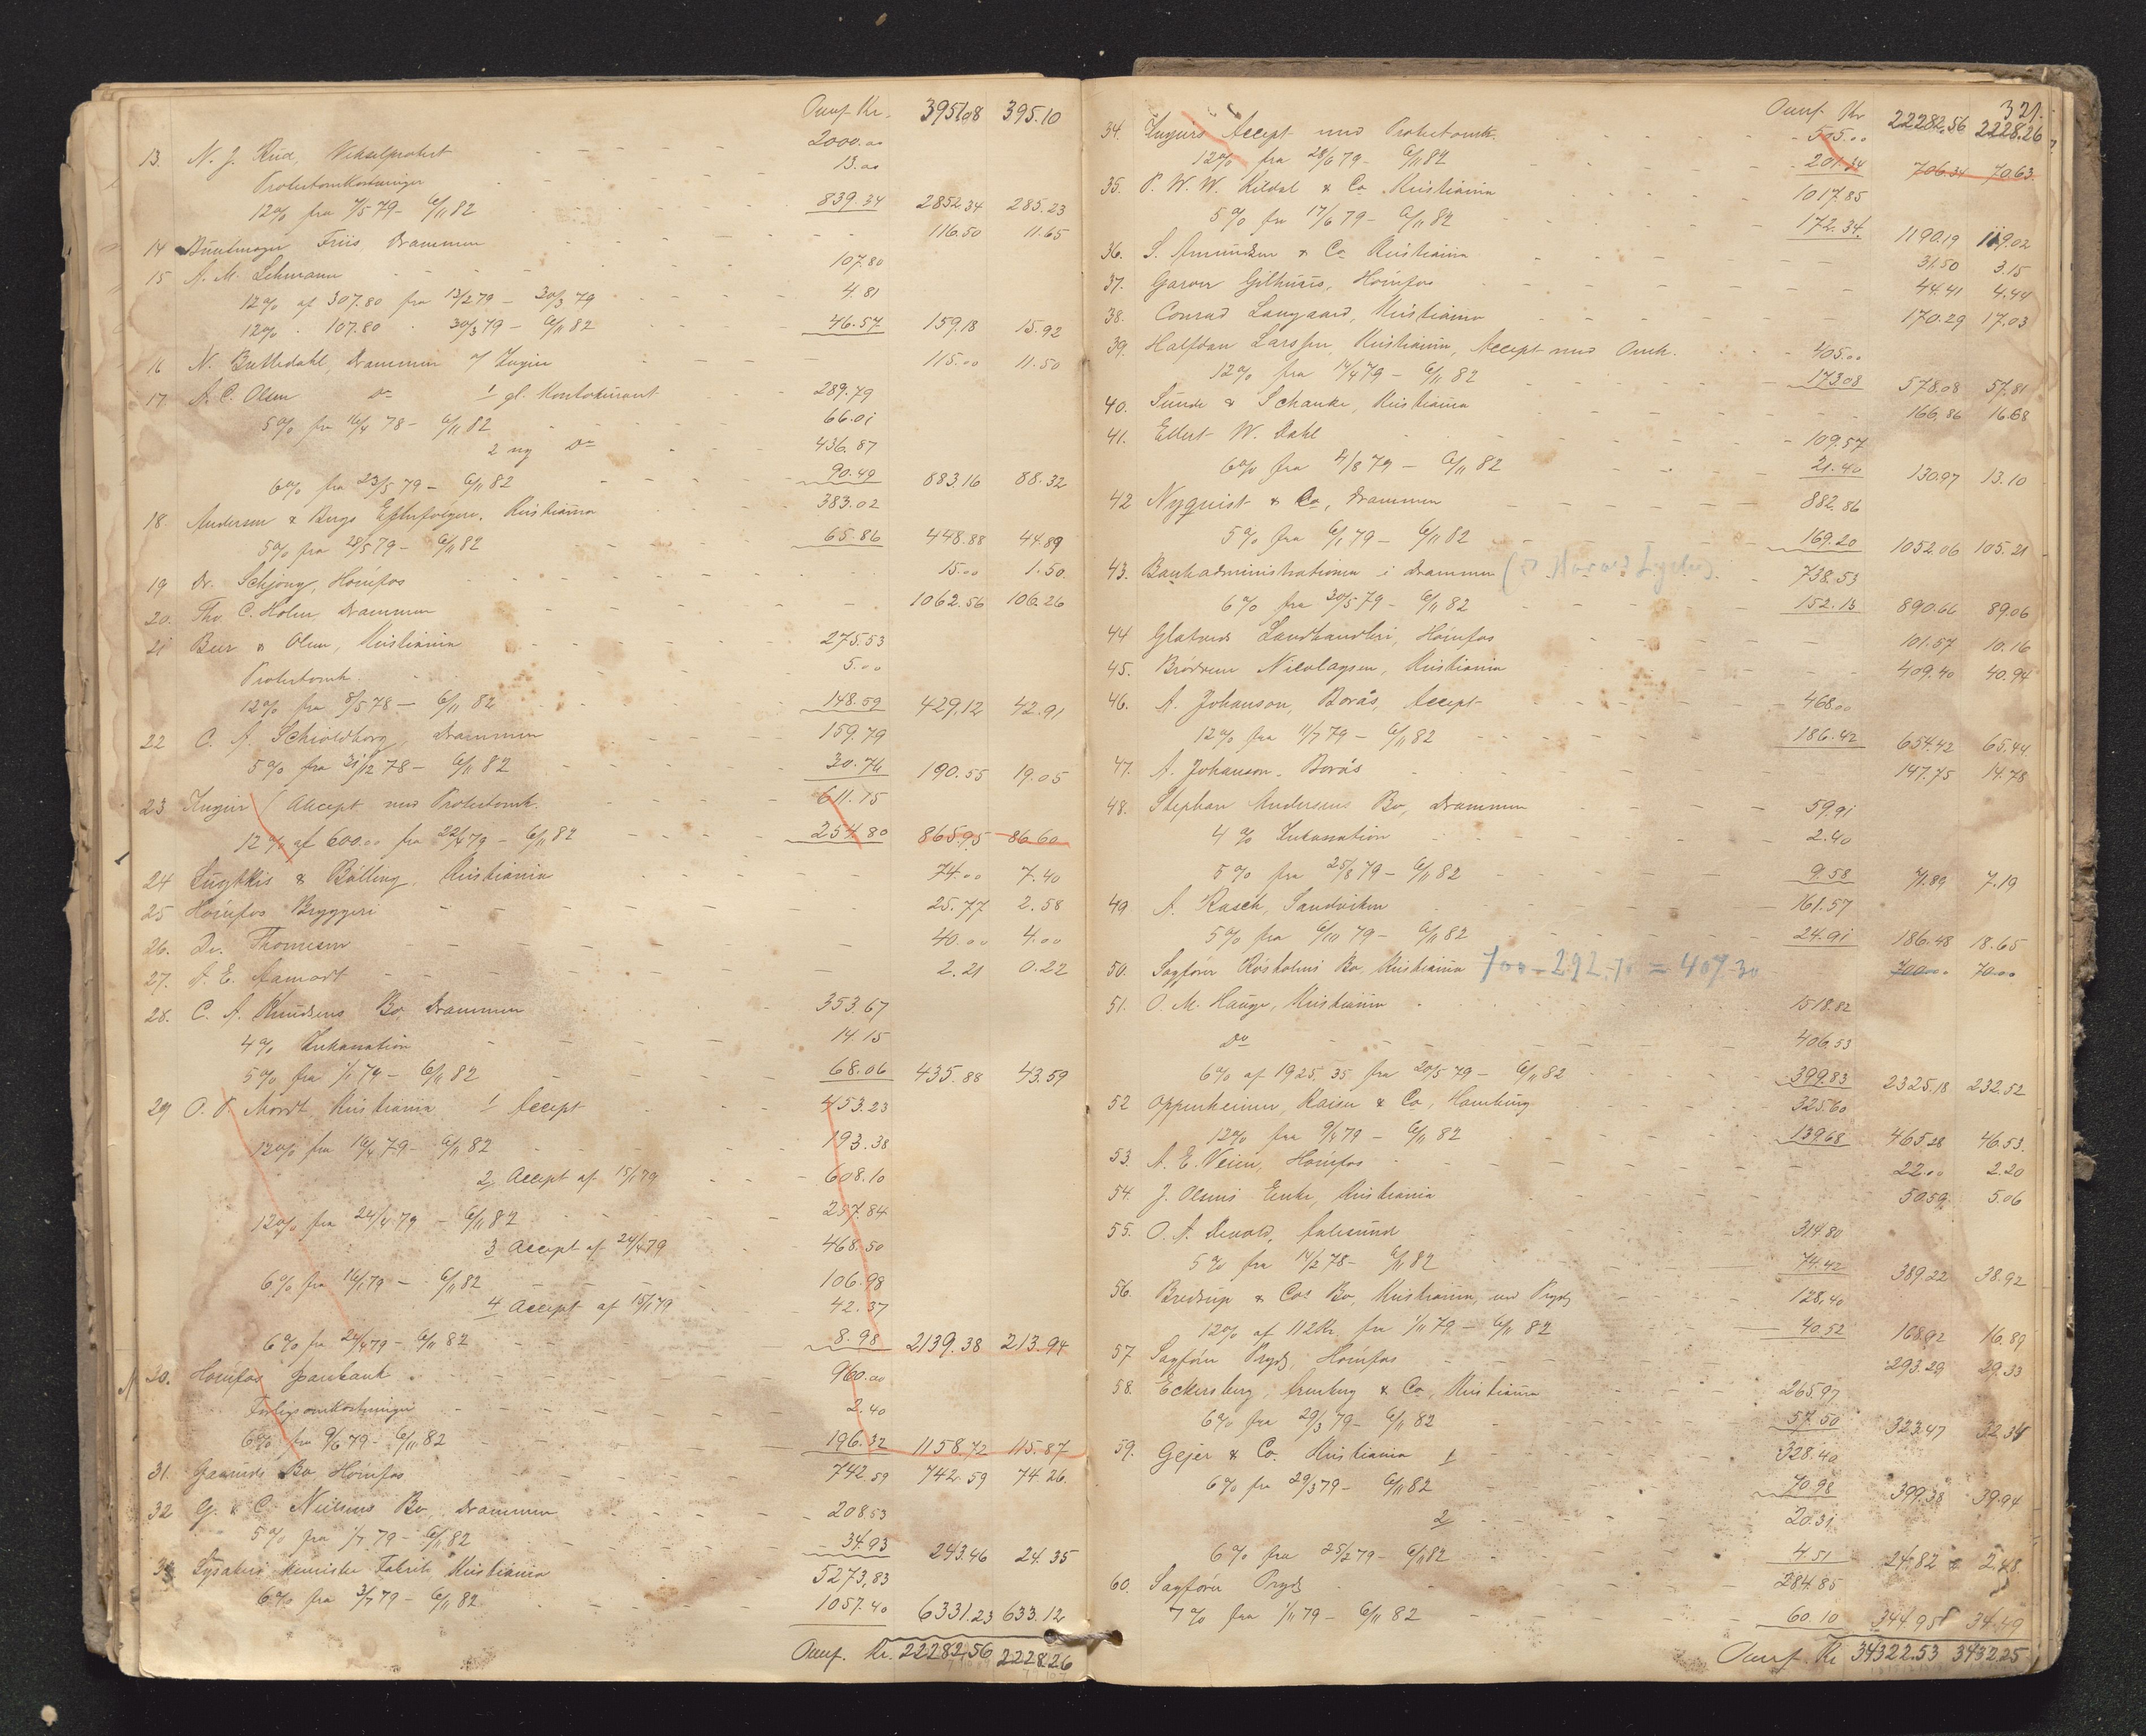 Omf. Kr. 3951.08 395.10
2000.00
13. N. J. Rud, Vekselprotest 13.00
Protestomkostninger
12% fra 7/5 79 - 6/11 82 839.34 2852.34 285.23
14 Buntmager Friis, Drammen 116.50 11.65
15 A. M. Lehmann 107.80
12% af 307.80 fra 13/2 79 - 30/3 79 4.81
12% . 107.80 . 30/3 79 - 6/11 82 46.57 159.18 15.92
16 N. Buttedahl, Drammen 115.00 11.50
17. A. C. Olsen do 1 gl. Kontokurant 289.79
5% fra 16/4 78 - 6/11 82 66.01
2 ny Do 436.87
6% fra 23/5 79 - 6/11 82 90.49 883.16 88.32
18. Andersen & Bergs Efterfølgere, Kristiania 383.02
5% fra 28/5 79 - 6/11 82 65.86 448.88 44.89
19 Dr. Schjong, Hønefos 15.00 1.50
20. Th. C. Holm, Drammen 1062.56 106.26
21 Beer & Olsen, Kristiania 275.53
Protestomk. 5.00
12% fra 8/5 78 - 6/11 82 148.59 429.12 42.91
22 C. A. Schioldborg, Drammen 159.79
5% fra 31/12 78 - 6/11 82 30.76 190.55 19.05
23 Accept med Protestomk. 611.15
12% af 600.00 fra 22/4 79 - 6/11 82 254.80 865.95 86.60
24 & Bølling, Kristiania 74.00 7.40
25 Hønefos Bryggeri 25.77 2.58
26. Dr. Thomesen 40.00 4.00
27. A. E. Aamodt 2.21 0.22
28. C. A. Knudsens Bo Drammen 353.67
4% Inkassation 14.15
5% fra 1/1 79 - 6/11 82 68.06 435.88 43.59
29 O. P. Mordt, Kristiania 1 Accept 453.23
12% fra 16/4 79 - 6/11 82 193.38
2 Accept af 15/1 79 608.10
12% fra 24/4 79 - 6/11 82 257.84
3 Accept af 24/4 79 468.50
6% fra 16/1 79 - 6/11 82 106.98
4 Accept af 15/1 79 42.37
6% fra 24/4 79 - 6/11 82 8.98 2139.38 213.94
30. Hønefos Sparebank 960.00
Forligsomkostninger 2.40
6% fra 9/6 79 - 6/11 82 196.32 1158.72 115.87
31. Bo, Hønefos 742.59 742.59 74.26
32 G. & C. Nielsens Bo, Drammen 208.53
5% fra 1/7 79 - 6/11 82 34.93 243.46 24.35
33 Lysakers kemiske Fabrik, Kristiania 5273,83
6% fra 3/7 79 - 6/11 82 1057.40 6331.23 633.12
Omf. Kr. 22282,56 2228.26
321.
Omf. Kr 22282,56 2228.26
34. Accept med Protestomk. 505.00
12% fra 28/6 79 - 6/11 82 201.34 706.34 70.63
35. P. W. W. Kildal & Co Kristiania 1017.85
5% fra 17/6 79 - 6/11 82 172.34. 1190.19 119.02
36. S. Amundsen & Co Kristiania 31.50 3.15
37. Garver Gilhuus, Hønefos 44.41 4.44
38. Conrad Langaard, Kristiania 170.29 17.03
39. Halfdan Larssen, Kristiania, Accept med Omk. 405.00
12% fra 14/4 79 - 6/11 82 173.08 578.08 57.81
40. Sunde & Schanke, Kristiania 166.86 16.68
41. Ellert W. Dahl 109.57
6% fra 4/8 79 - 6/11 82 21.40 130.97 13.10
42 Nyquist & Co, Drammen 882.86
5% fra 6/1 79 - 6/11 82 169.20 1052.06 105.21
43. Bankadministrationen i Drammen 738.53
6% fra 30/5 79 - 6/11 82 152.13 890.66 89.06
44 Glatveds Landhandleri, Hønefos 101.57 10.16
45. Brødrene Nicolaysen, Kristiania 409.40 40.94
46. A. Johanson, Borås, Accept 468.00
12% fra 11/7 79 - 6/11 82 186.42 654.42 65.44
47. A. Johanson, Borås 147.75 14.78
48. Stephan Andersens Bo, Drammen 59.91
4% Inkassation 2.40
5% fra 25/8 79 - 6/11 82 9.58 71.89 7.19
49 A. Rasch, Sandviken 161.57
5% fra 6/10 79 - 6/11 82 24.91 186.48 18.65
50. Sagfører Røsholms Bo, Kristiania 700 - 292.70 = 407.30 700.00 70.00
51. O. M. Hauge, Kristiania 1518.82
Do 406.53
6% af 1925.35 fra 20/5 79 - 6/11 82 399.83 2325,18 232.52
52 Oppenheimer, Kaiser & Co, Hamburg 325.60
12% fra 9/4 79 - 6/11 82 139.68 465.28 46.53.
53. A. E. Veien, Hønefos 22.00 2.20
54. J. Olsens Enke, Kristiania 50.59 5.06
55. O. A. Devold, Aalesund 314.80
5% fra 14/2 78 - 6/11 82 74.42 389.22 38.92
56. Bredrup & Cos Bo, Kristiania, ved Pryds 128.40
12% af 112 Kr. fra 1/11 79 - 6/11 82 40.52 168.92 16.89
57 Sagfører Pryds, Hønefos 293.29 29.33
58. Eckersberg, & Co, Kristiania 265.97
6% fra 29/3 79 - 6/11 82 57.50 323.47 32.35
59. Gejer & Co. Kristiania 1 328.40
6% fra 29/3 79 - 6/11 82 70.98 399.38 39.94
2 20.31
6% fra 25/2 79 - 6/11 82 4.51 24.82 2.48
60. Sagfører Pryds 284.85
7% fra 1/11 79 - 6/11 82 60.10 344.95 34.49
Omf. Kr 34322.53 3432.25